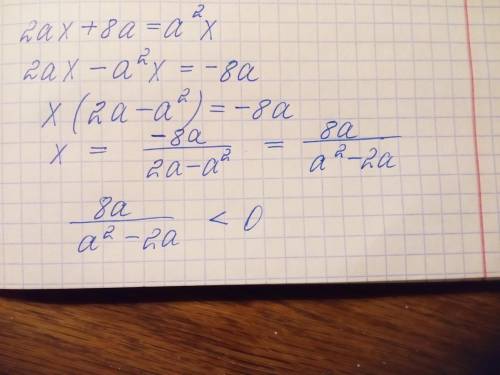 2ax + 8a = a²x
2ax - a²x = -8a
x (2a - a²) = -8a
x = -8a / (2a - a²) = 8a / (a² - 2a)
8a / (a² - 2a) < 0